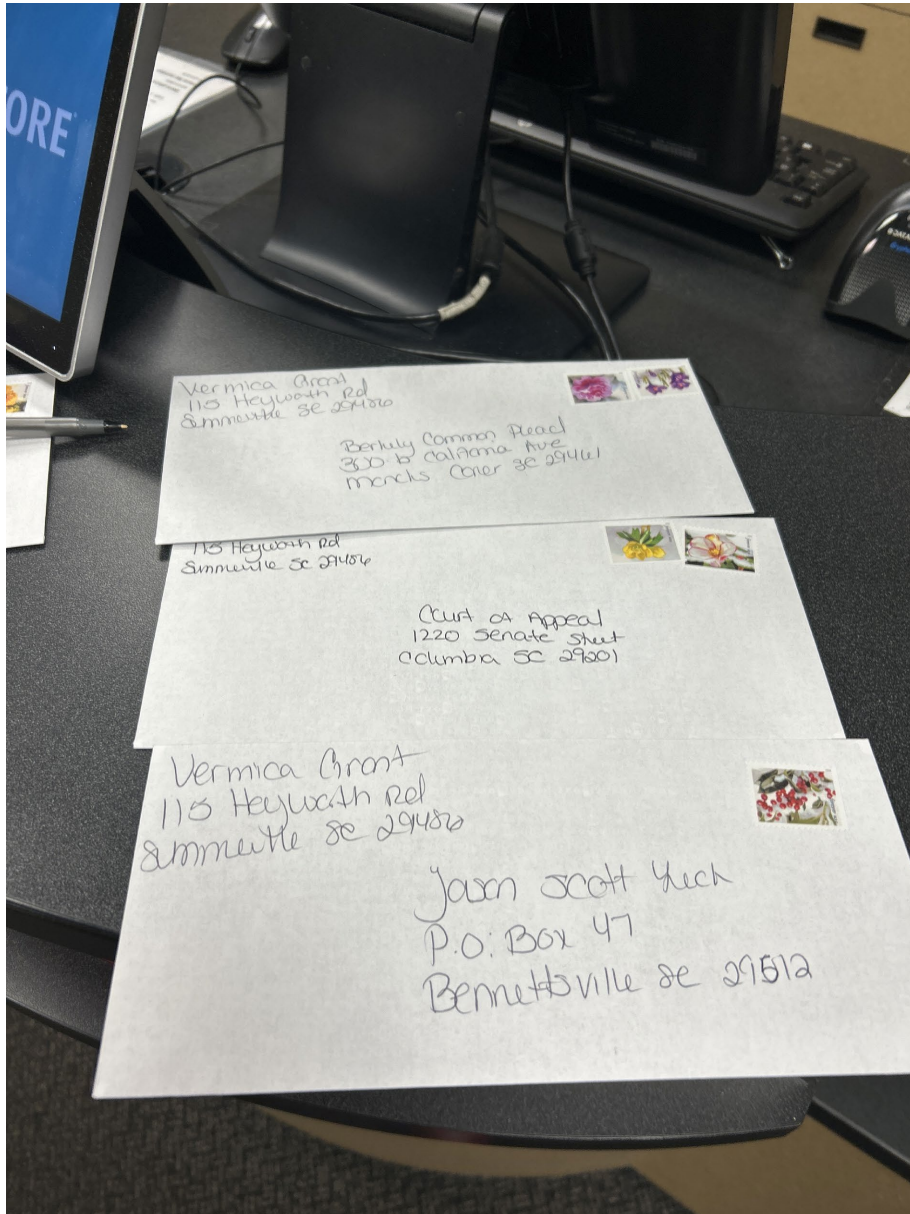 ORE
Vermica Grant
115 Heyworth Rd
Summerville SC 29486
Berkely Common Plead
300-b California Ave
Moncks Coner SC 29461
115 Heyworth Rd
Summerville SC 29486
Court of Appeal
1220 Senate Street
Columbia SC 29201
Vermica Grant
115 Heyworth Rd
Summerville SC 29486
Jason Scott
P.O. Box 47
Bennettsville SC 29512